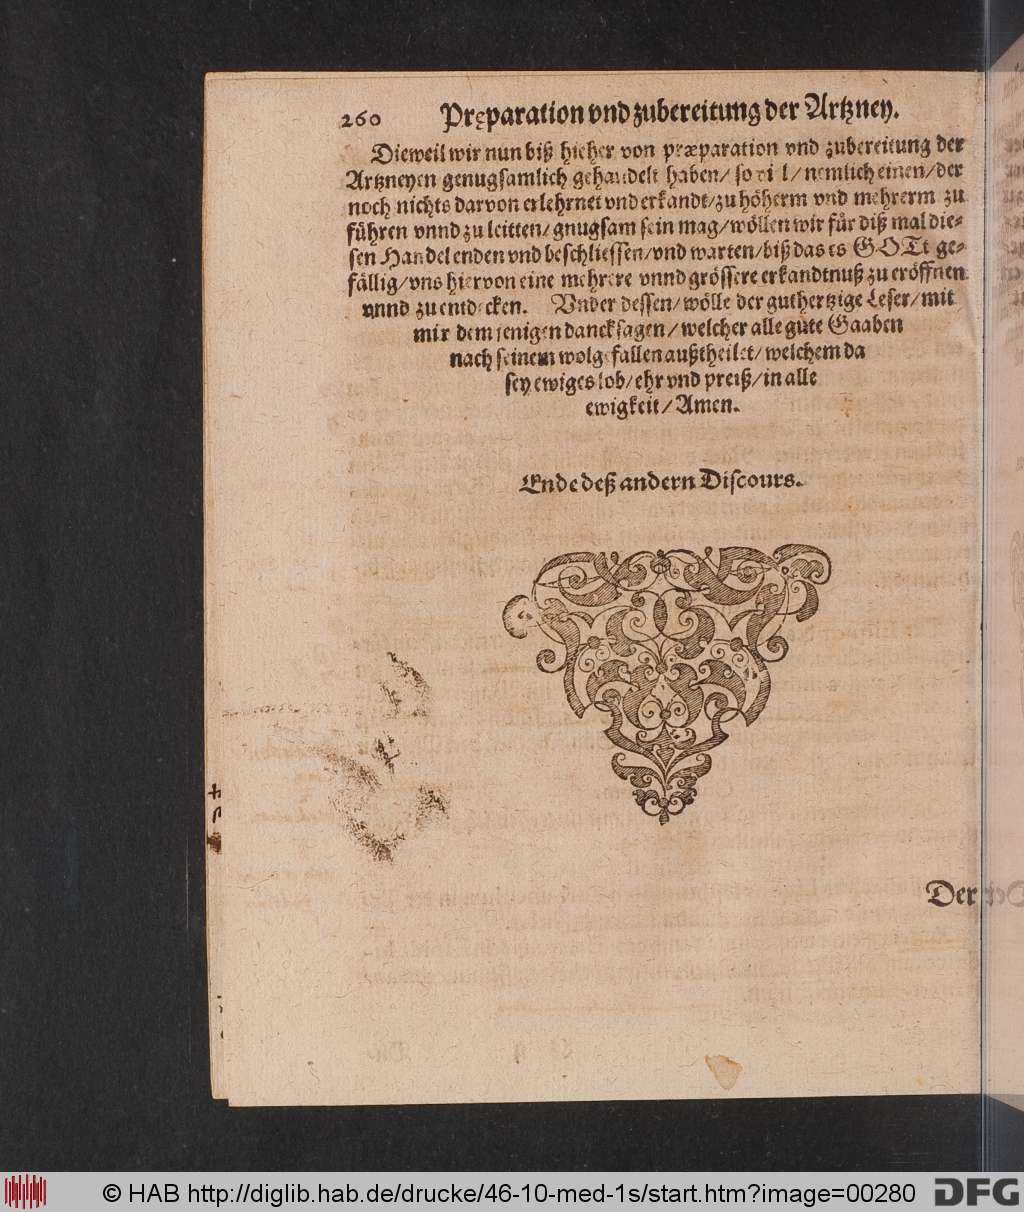 260 Pręparation vnd zubereitung der Artzney.
Dieweil wir nun biß hieher von præparation vnd zubereitung der
Artzneyen genugsamlich gehandelt haben/ so vil/ nemlich einen/ der
noch nichts darvon erlehrnet vnd erkandt/ zu höherm vnd mehrerm zu
führen vnnd zu leitten/ gnugsam sein mag/ wöllen wir für diß mal die-
sen Handel enden vnd beschliessen/ vnd warten/ biß das es GOTt ge-
fällig/ vns hiervon eine mehrere vnnd grössere erkandtnuß zu eröffnen
vnnd zu entdecken. Vnder dessen/ wölle der guthertzige Leser/ mit
mir dem jenigen dancksagen/ welcher alle gůte Gaaben
nach seinem wolgefallen außtheilet/ welchem da
sey ewiges lob/ ehr vnd preiß/ in alle
ewigkeit/ Amen.
Ende deß andern Discours.
Der
© HAB http://diglib.hab.de/drucke/46-10-med-1s/start.htm?image=00280
DFG